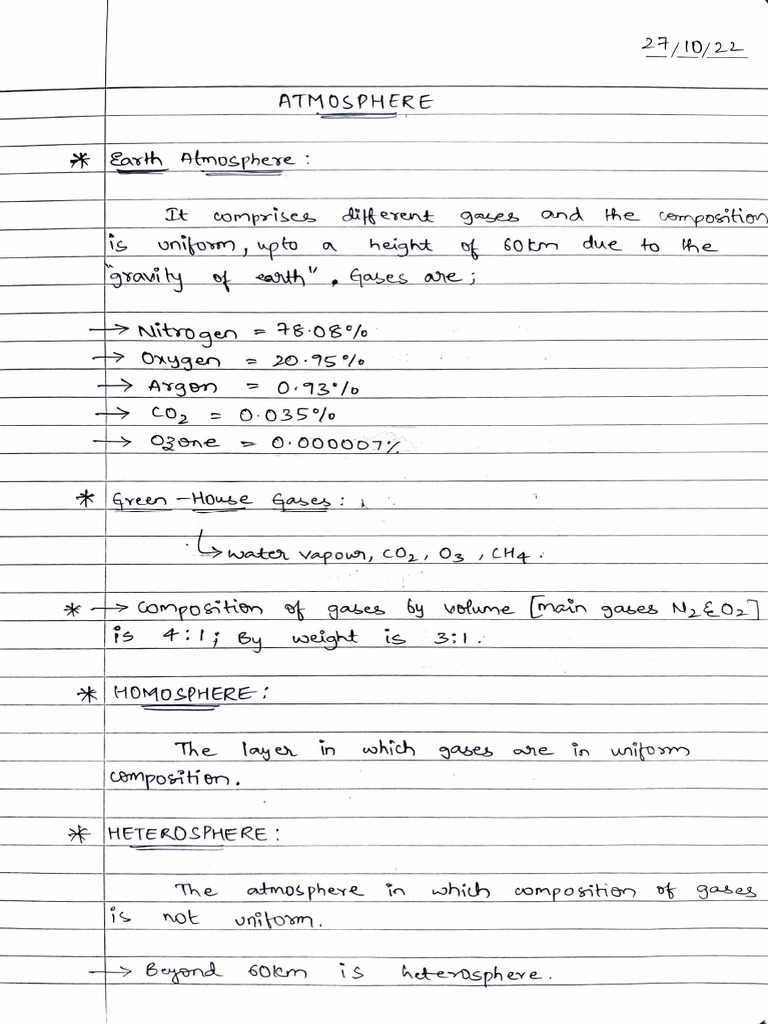 27/10/22
ATMOSPHERE
* Earth Atmosphere :
It comprises different gases and the composition
is uniform, upto a height of 60km due to the
"gravity of earth". Gases are ;
→ Nitrogen = 78.08%
→ Oxygen = 20.95%
→ Argon = 0.93%
→ CO2 = 0.035%
→ Ozone = 0.000007%
* Green-House Gases :
↳ water vapour, CO2, O3, CH4.
* → Composition of gases by volume [main gases N2 & O2]
is 4:1; By weight is 3:1.
* HOMOSPHERE :
The layer in which gases are in uniform
composition.
* HETEROSPHERE :
The atmosphere in which composition of gases
is not uniform.
→ Beyond 60km is heterosphere.